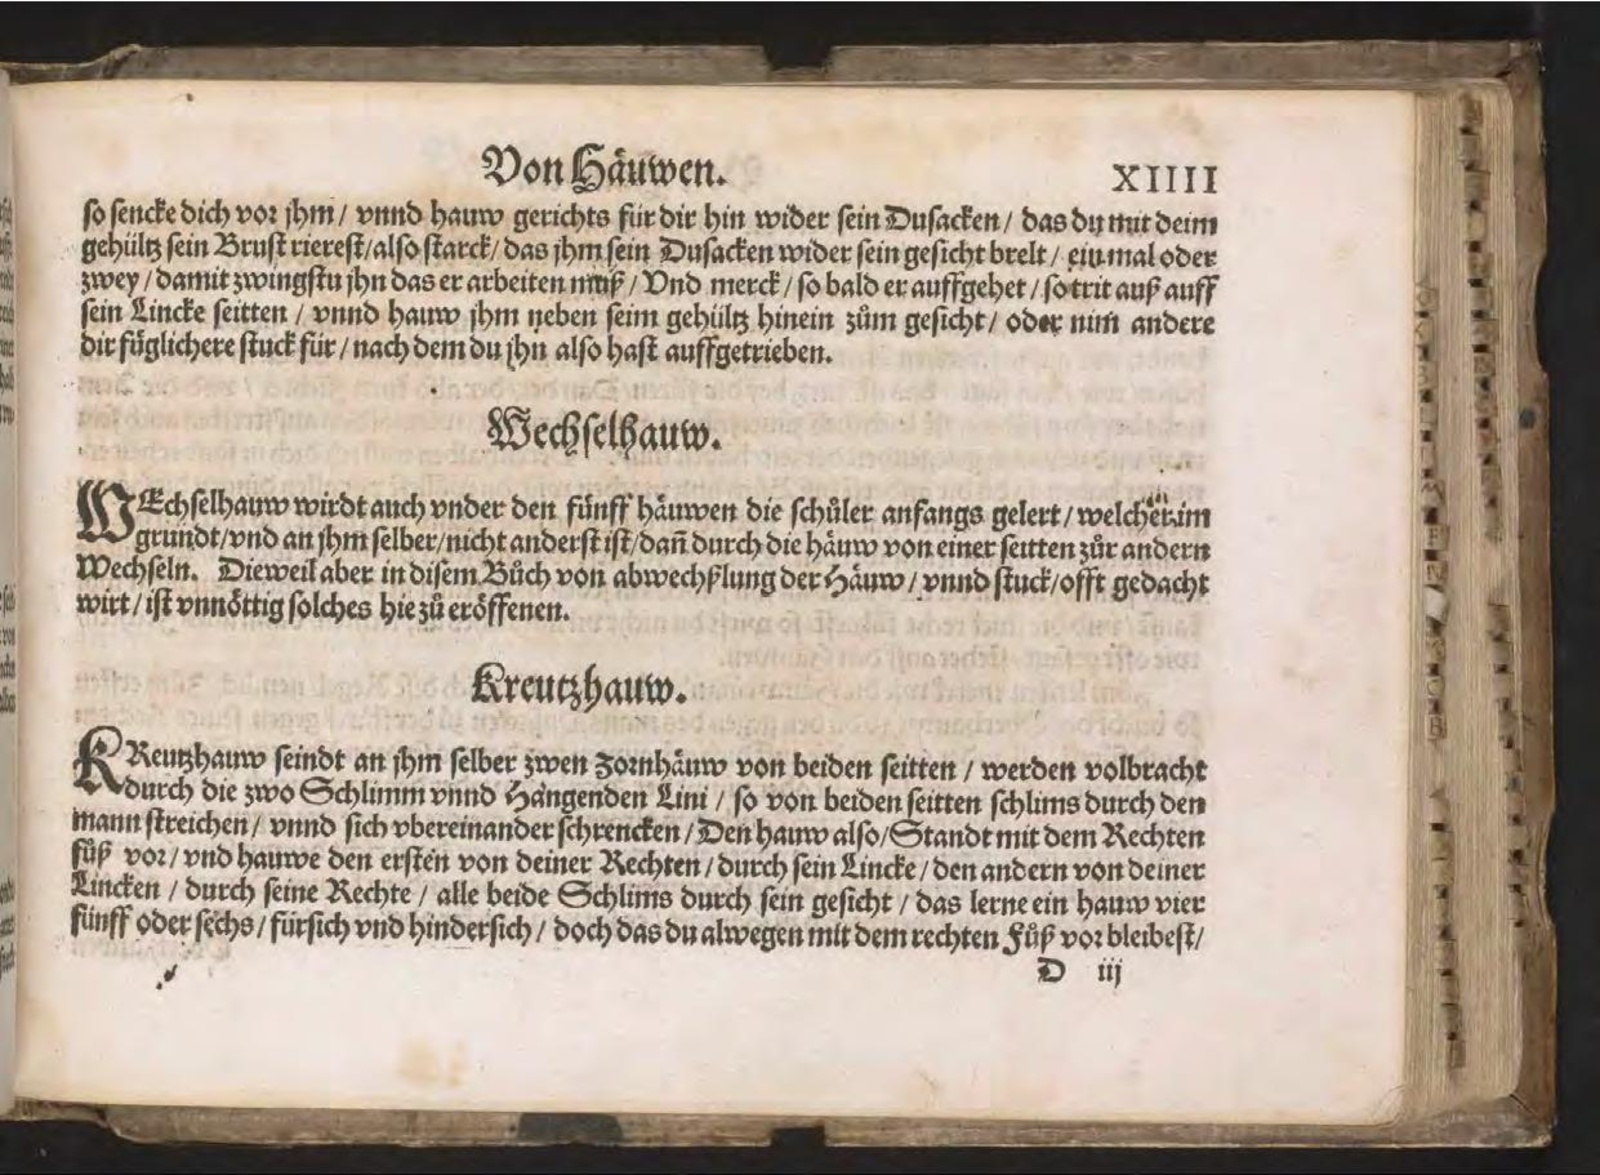 Von Häuwen.
XIIII
so sencke dich vor jhm / vnnd hauw gerichts für dir hin wider sein Dusacken / das du mit deim
gehültz sein Brust rierest / also starck / das jhm sein Dusacken wider sein gesicht brelt / ein mal oder
zwey / damit zwingstu jhn das er arbeiten muß / Vnd merck / so bald er auffgehet / so trit auß auff
sein Lincke seitten / vnnd hauw jhm neben seim gehültz hinein zům gesicht / oder nim̃ andere
dir füglichere stuck für / nach dem du jhn also hast auffgetrieben.
Wechselhauw.
WEchselhauw wirdt auch vnder den fünff häuwen die schůler anfangs gelert / welcher im
grundt / vnd an jhm selber / nicht anderst ist / dañ durch die häuw von einer seitten zůr andern
Wechseln. Dieweil aber in disem Bůch von abwechßlung der Häuw / vnnd stuck / offt gedacht
wirt / ist vnnöttig solches hie zů eröffenen.
Kreutzhauw.
KReutzhauw seindt an jhm selber zwen Zornhäuw von beiden seitten / werden volbracht
durch die zwo Schlimm vnnd Hangenden Lini / so von beiden seitten schlims durch den
mann streichen / vnnd sich vbereinander schrencken / Den hauw also / Standt mit dem Rechten
fůß vor / vnd hauwe den ersten von deiner Rechten / durch sein Lincke / den andern von deiner
Lincken / durch seine Rechte / alle beide Schlims durch sein gesicht / das lerne ein hauw vier
fünff oder sechs / fürsich vnd hindersich / doch das du alwegen mit dem rechten Fůß vor bleibest /
D iij